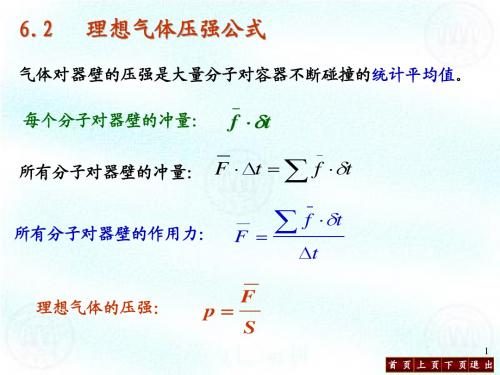 6.2 理想气体压强公式
气体对器壁的压强是大量分子对容器不断碰撞的统计平均值。
每个分子对器壁的冲量: f̄ · δt
所有分子对器壁的冲量: F̄ · Δt = ∑ f̄ · δt
所有分子对器壁的作用力: F̄ = ∑ f̄ · δt / Δt
理想气体的压强: p = F̄ / S
1
首页 上页 下页 退出